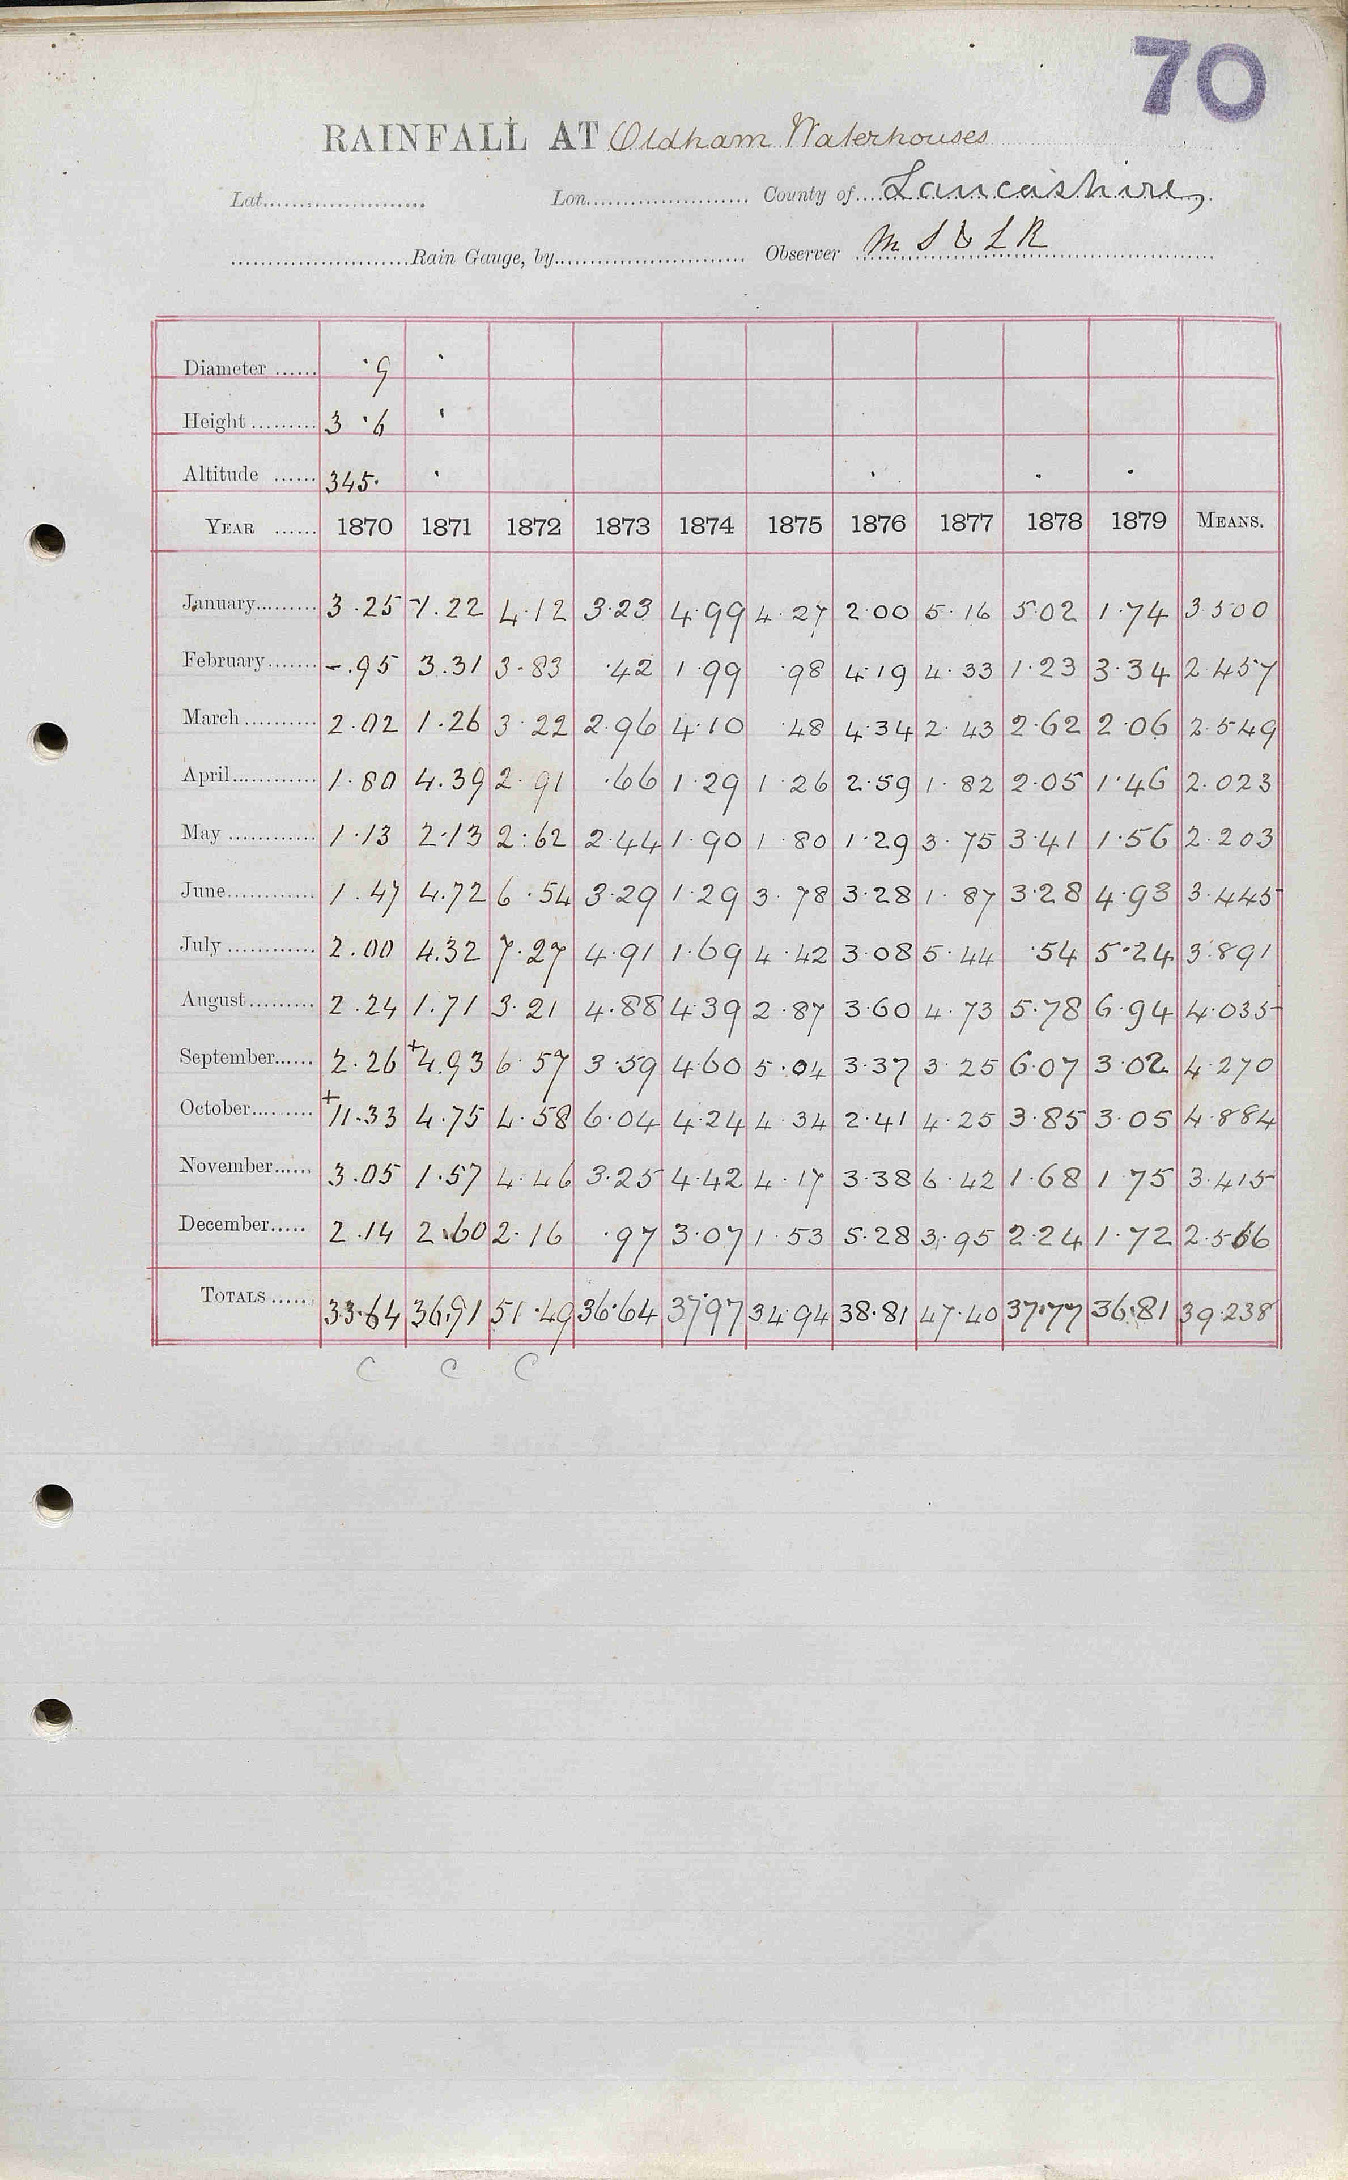 70
RAINFALL AT Oldham Waterhouses
Lat. Lon. County of Lancashire,
Rain Gauge, by Observer M S & L R
Diameter ·9
Height 3 ·6
Altitude 345·
YEAR 1870 1871 1872 1873 1874 1875 1876 1877 1878 1879 MEANS.
January 3.25 1.22 4.12 3.23 4.99 4.27 2.00 5.16 5.02 1.74 3.500
February -.95 3.31 3.83 .42 1.99 .98 4.19 4.33 1.23 3.34 2.457
March 2.02 1.26 3.22 2.96 4.10 .48 4.34 2.43 2.62 2.06 2.549
April 1.80 4.39 2.91 .66 1.29 1.26 2.59 1.82 2.05 1.46 2.023
May 1.13 2.13 2.62 2.44 1.90 1.80 1.29 3.75 3.41 1.56 2.203
June 1.47 4.72 6.54 3.29 1.29 3.78 3.28 1.87 3.28 4.93 3.445
July 2.00 4.32 7.27 4.91 1.69 4.42 3.08 5.44 .54 5.24 3.891
August 2.24 1.71 3.21 4.88 4.39 2.87 3.60 4.73 5.78 6.94 4.035
September 2.26 +4.93 6.57 3.59 4.60 5.04 3.37 3.25 6.07 3.02 4.270
October +11.33 4.75 4.58 6.04 4.24 4.34 2.41 4.25 3.85 3.05 4.884
November 3.05 1.57 4.46 3.25 4.42 4.17 3.38 6.42 1.68 1.75 3.415
December 2.14 2.60 2.16 .97 3.07 1.53 5.28 3.95 2.24 1.72 2.566
TOTALS 33.64 36.91 51.49 36.64 37.97 34.94 38.81 47.40 37.77 36.81 39.238
C C C